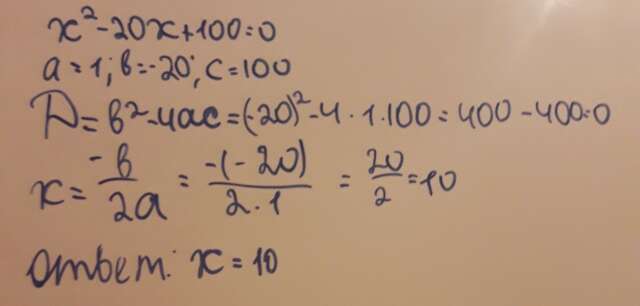 x²-20x+100=0
a=1; b=-20; c=100
D=b²-4ac=(-20)²-4·1·100=400-400=0
x=\frac{-b}{2a}=\frac{-(-20)}{2·1}=\frac{20}{2}=10
Ответ: x=10